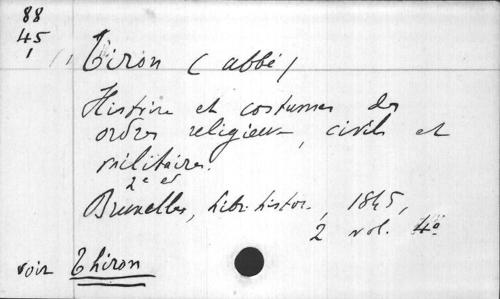 88
45
1
Tiron (abbé)
Histoire et costumes des
ordres religieux, civils et
militaires.
2e ed
Bruxelles, libr. histor., 1845,
2 vol. 4o
voir Thiron